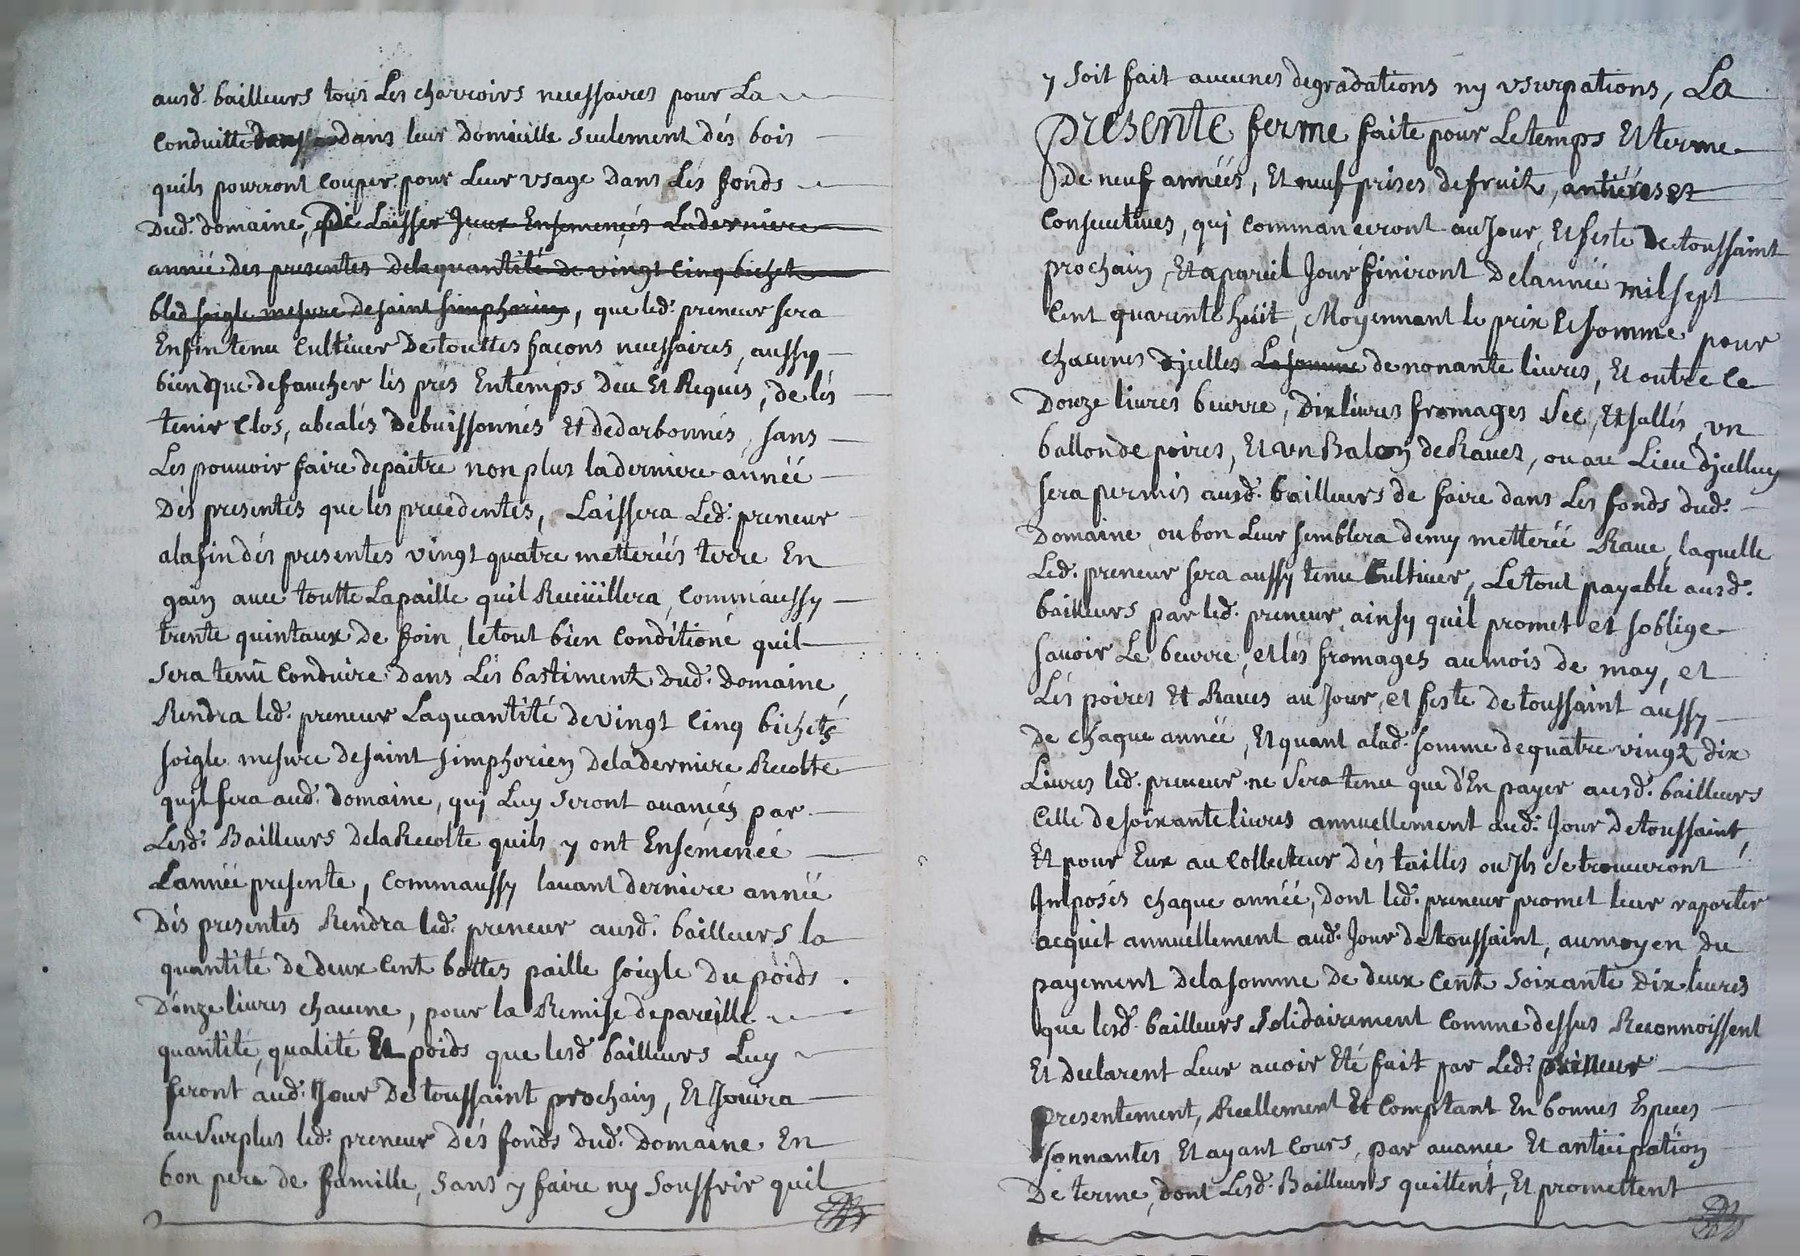 ausd. bailleurs tous Les charroirs necessaires pour La
conduitte dans leur domicille seulement dés bois
quils pourront couper pour Leur usage dans Lés fonds
Dud. domaine, De Laisser Jceux Ensemencés Laderniere
année des presentes delaquantité de vingt cinq bichet
bled soigle mesure desaint simphorien, que led. preneur sera
Enfin tenu cultiver De touttes facons necessaires, aussy
bien que defaucher lés prés Entemps deu Et Requis, de lés
tenir clos, abealés debuissonnés Et dedarbonnés, sans
Les pouvoir faire depaitre non plus laderniere année
Dés presentes que les precedentes, Laissera Led. preneur
alafin dés presentes vingt quatre metterées terre En
gain avec toutte Lapaille quil Recüillera, Comm'aussy
trente quintaux de foin, letout bien conditioné quil
sera tenu conduire dans Lés bastiment dud. domaine,
Rendra led. preneur Laquantité de vingt cinq bichets
soigle mesure desaint simphorien deladerniere Recolte
quil fera aud. domaine, quj Luy seront avancés par
Lesd. Bailleurs delaRecolte quils y ont Ensémencé
Lannée presente, commaussy lavant derniere année
Dés presentes Rendra led. preneur ausd. bailleurs la
quantité de deux cent bottes paille soigle du poids
D'onze livres chacune, pour la Remise depareille
quantité, qualité Et poids que lesd bailleurs Luy
feront aud. Jour De toussaint prochain, Et Jouira
au surplus led. preneur dés fonds dud. domaine En
bon pere de famille, sans y faire ny souffrir quil
y soit fait aucunes degradations ny usurpations, La
presente ferme faite pour Letemps Et terme
De neuf années, Et neuf prises de fruit, antiéres et
consecutives, quj commanceront au Jour, Et feste de toussaint
prochain, Et apareil Jour finiront delannée mil sept
cent quarente huit, Moyennant le prix Et somme pour
chacunes d'jcelles La somme de nonante livres, Et outre ce
Douze livres beurre, dix livres fromages sec, Et sallés, un
ballon de poires, Et un Balon de Raves, ou au Lieu d'jcelluy
sera permis ausd. bailleurs de faire dans Les fonds dud.
Domaine ou bon Leur semblera demy metterée Rave, laquelle
Led. preneur sera aussy tenu Cultiver, Letout payable ausd.
bailleurs par led. preneur ainsy quil promet et soblige
savoir Le beurre, et lés fromages au mois de may, et
Lés poires Et Raves au Jour, et feste de toussaint aussy
de chaque année, Et quant alad. somme de quatre vingt dix
Livres led. preneur ne sera tenu que d'En payer ausd. bailleurs
celle de soixante livres annuellement aud. Jour de toussaint,
Et pour Eux au Collecteur dés tailles ou Jls se trouveront
Jmposés chaque année, dont led. preneur promet leur raporter
acquit annuellement aud. Jour de toussaint, aumoyen du
payement delasomme de deux cent soixante dix livres
que lesd. bailleurs solidairement comme dessus Reconnoissent
Et declarent Leur avoir Eté fait par Led. preneur
presentement, Reellement Et comptant En bonnes Especes
sonnantes Et ayant cours, par avance Et anticipation
De terme, dont Lesd. Bailleurs quittent, Et promettent